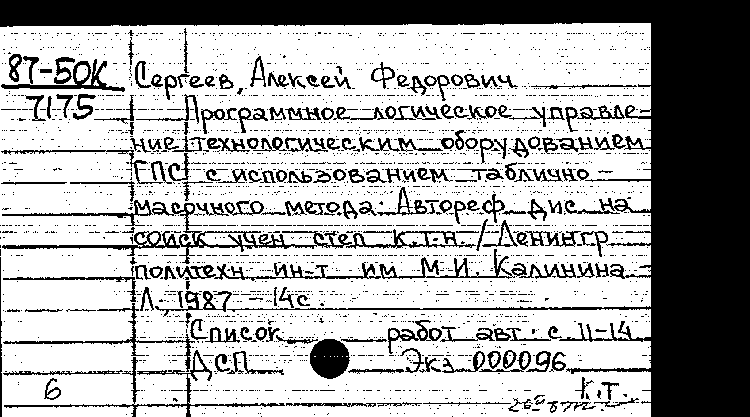 87-50К
7175
Сергеев, Алексей Федорович
Программное логическое управле-
ние технологическим оборудованием
ГПС с использованием таблично-
масочного метода: Автореф. дис. на
соиск. учен. степ. к.т.н. / Ленингр.
политехн. ин-т им. М.И. Калинина. -
Л., 1987. - 14с.
Список работ авт.: с. 11-14
ДСП Экз 000096
6 К.Т.